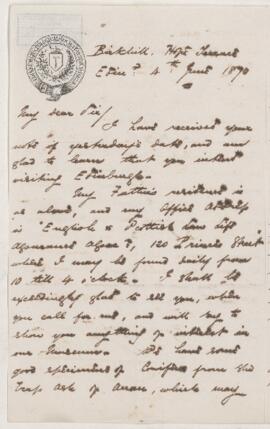 Birkhill, Hope Terrace
Edinr 4th June 1890
My dear Sir/
I have received your
note of yesterday's date, and am
glad to learn that you intend
visiting Edinburgh.
My Father's residence is
as above, and my office address
is "English & Scottish Law Life
Assurance Assocn, 120 Princes Street"
where I may be found daily from
10 till 4 o'clock. I shall be
exceedingly glad to see you, when
you call for me, and will try to
show you anything of interest in
our Museum. We have some
good specimens of Conifers from the
Trap Ash of Arran, which may